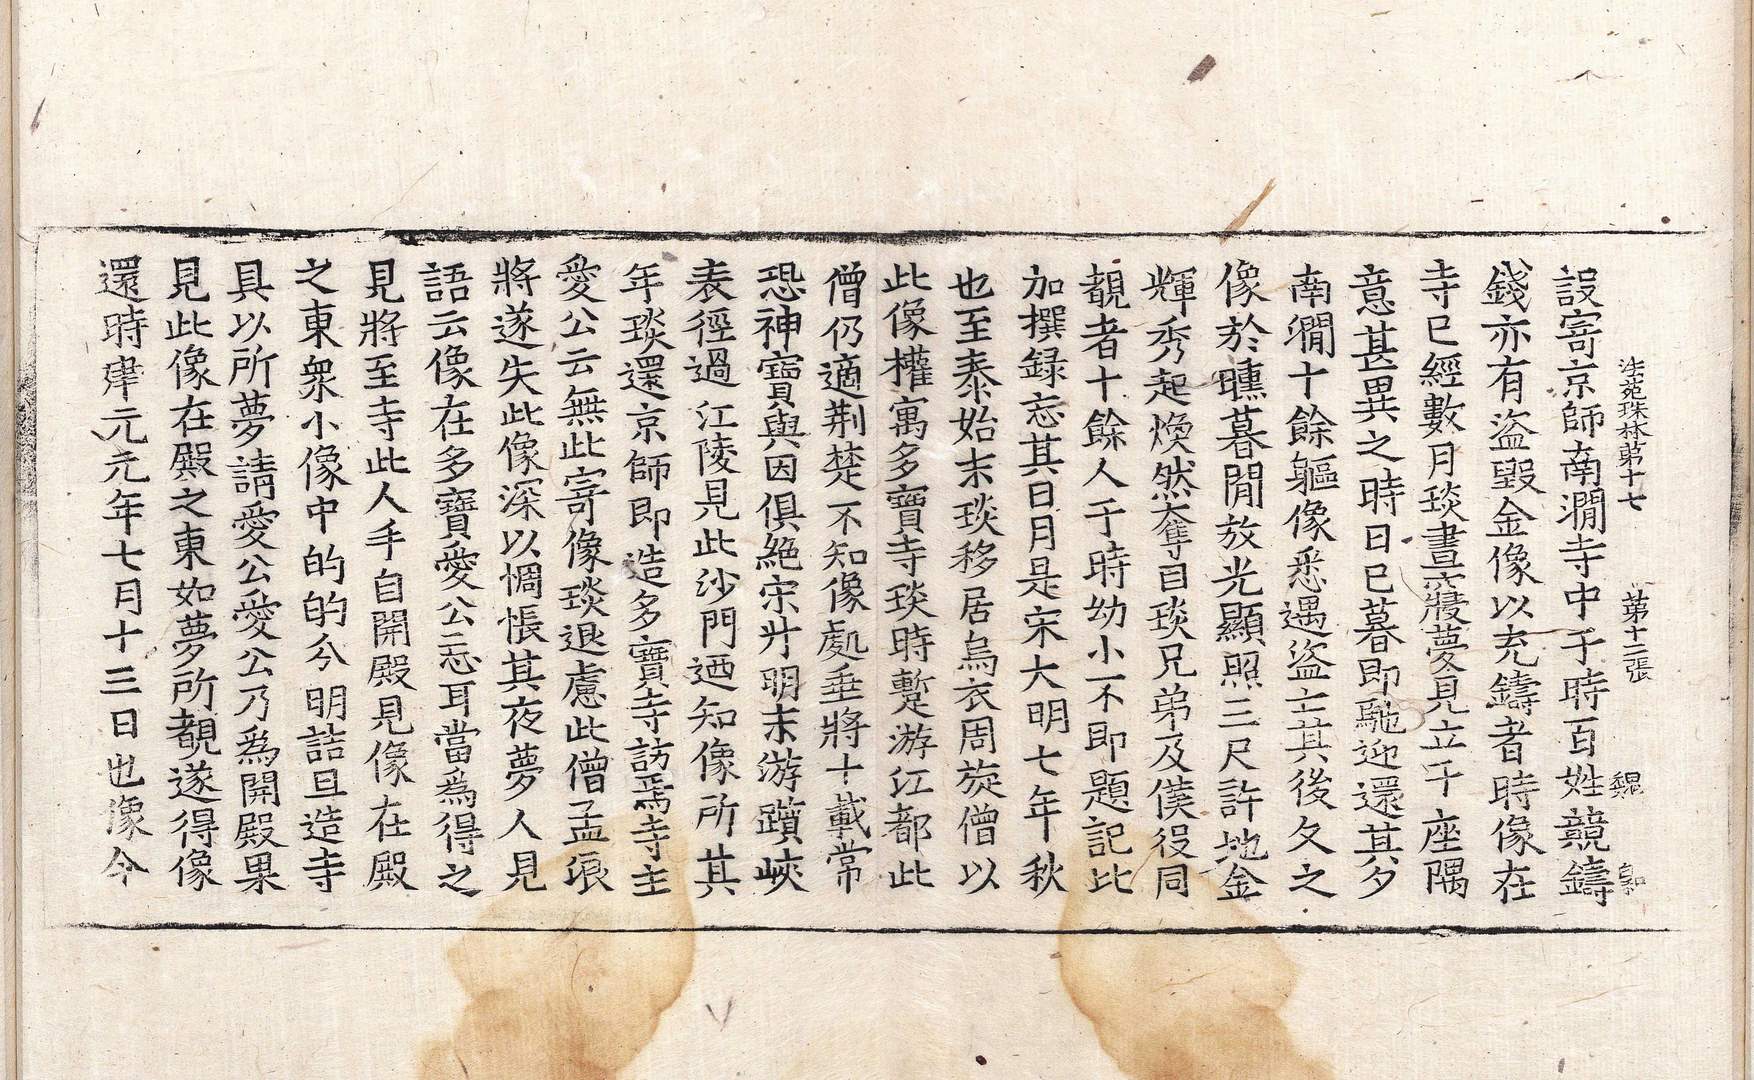 法苑珠林第十七 第十二張 覞 自和
設寄京師南澗寺中于時百姓競鑄
錢亦有盜毀金像以充鑄者時像在
寺巳經數月琰晝寢夢見立于座隅
意甚異之時日巳暮即馳迎還其夕
南澗十餘軀像悉遇盜亡其後久之
像於曛暮閒放光顯照三尺許地金
輝秀起煥然奪目琰兄弟及僕役同
覩者十餘人于時幼小不即題記比
加撰録忘其日月是宋大明七年秋
也至泰始末琰移居烏衣周旋僧以
此像權寓多寶寺琰時蹔游江都此
僧仍適荆楚不知像處垂將十載常
恐神寶與因俱絶宋昇明末游躓峽
表徑過江陵見此沙門迺知像所其
年琰還京師即造多寶寺訪焉寺主
愛公云無此寄像琰退慮此僧孟浪
將遂失此像深以惆悵其夜夢人見
語云像在多寶愛公忘耳當爲得之
見將至寺此人手自開殿見像在殿
之東衆小像中的的今明詰旦造寺
具以所夢請愛公愛公乃爲開殿果
見此像在殿之東如夢所覩遂得像
還時建元元年七月十三日也像今